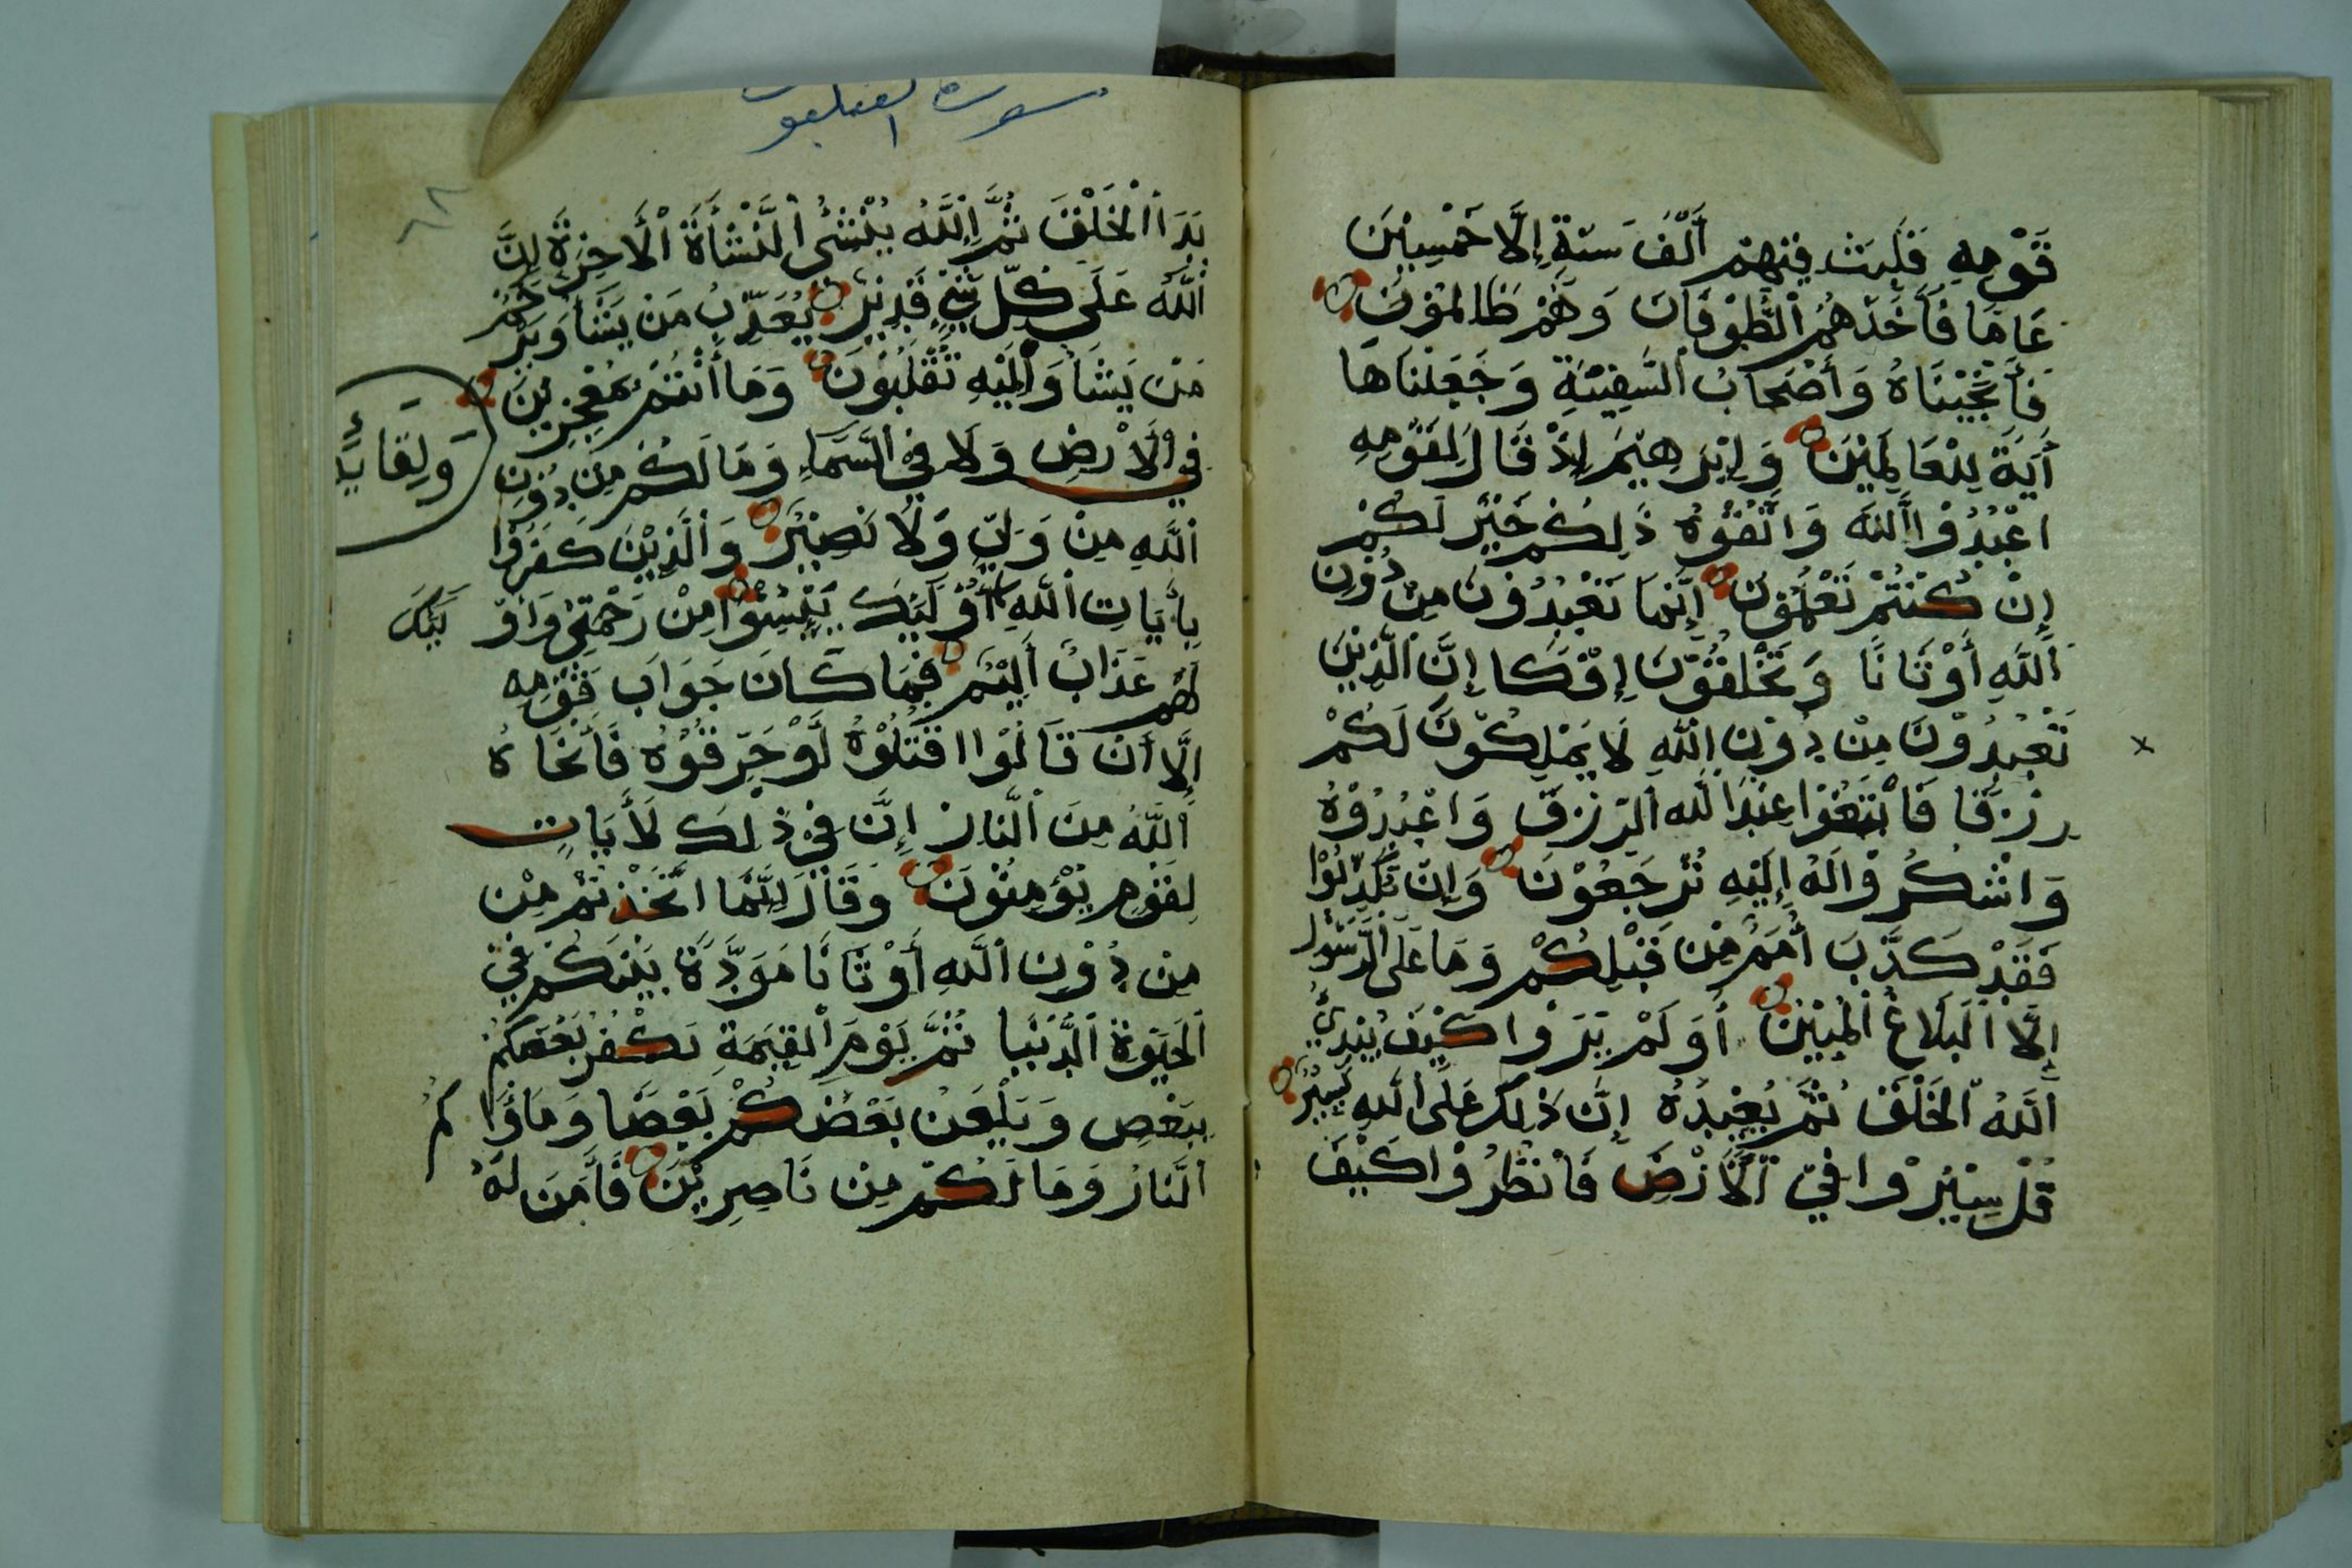 قَوْمِهِ فَلَبِثَ فِيْهِمْ أَلْفَ سَنَةٍ إِلَّا خَمْسِيْنَ
عَامًا فَأَخَذَهُمُ الطُّوْفَانُ وَهُمْ ظَالِمُوْنَ
فَأَنْجَيْنَاهُ وَأَصْحَابَ السَّفِيْنَةِ وَجَعَلْنَاهَا
أَيَةً لِلْعَالَمِيْنَ وَإِبْرَهِيْمَ إِذْ قَالَ لِقَوْمِهِ
اعْبُدُوْا اللَّهَ وَاتَّقُوْهُ ذَلِكُمْ خَيْرٌ لَكُمْ
إِنْ كُنْتُمْ تَعْلَمُوْنَ إِنَّمَا تَعْبُدُوْنَ مِنْ دُوْنِ
اللَّهِ أَوْثَانًا وَتَخْلُقُوْنَ إِفْكًا إِنَّ الَّذِيْنَ
تَعْبُدُوْنَ مِنْ دُوْنِ اللَّهِ لَا يَمْلِكُوْنَ لَكُمْ
رِزْقًا فَابْتَغُوْا عِنْدَ اللَّهِ الرِّزْقَ وَاعْبُدُوْهُ
وَاشْكُرُوْا لَهُ إِلَيْهِ تُرْجَعُوْنَ وَإِنْ تُكَذِّبُوْا
فَقَدْ كَذَّبَ أُمَمٌ مِنْ قَبْلِكُمْ وَمَا عَلَى الرَّسُوْلِ
إِلَّا الْبَلَاغُ الْمُبِيْنُ أَوَلَمْ يَرَوْا كَيْفَ يُبْدِئُ
اللَّهُ الْخَلْقَ ثُمَّ يُعِيْدُهُ إِنَّ ذَلِكَ عَلَى اللَّهِ يَسِيْرٌ
قُلْ سِيْرُوْا فِي الْأَرْضِ فَانْظُرُوْا كَيْفَ
سورة العنكبوت
بَدَأَ الْخَلْقَ ثُمَّ اللَّهُ يُنْشِئُ النَّشْأَةَ الْأَخِرَةَ إِنَّ
اللَّهَ عَلَى كُلِّ شَيْءٍ قَدِيْرٌ يُعَذِّبُ مَنْ يَشَأُ وَيَرْحَمُ
مَنْ يَشَأُ وَإِلَيْهِ تُقْلَبُوْنَ وَمَا أَنْتُمْ بِمُعْجِزِيْنَ
فِي الْأَرْضِ وَلَا فِي السَّمَاءِ وَمَا لَكُمْ مِنْ دُوْنِ
اللَّهِ مِنْ وَلِيٍّ وَلَا نَصِيْرٍ وَالَّذِيْنَ كَفَرُوْا
بِأَيَاتِ اللَّهِ أُوْلَئِكَ يَئِسُوْا مِنْ رَحْمَتِي وَأُوْ
لَئِكَ
وَلِقَائِهِ
لَهُمْ عَذَابٌ أَلِيْمٌ فَمَا كَانَ جَوَابَ قَوْمِهِ
إِلَّا أَنْ قَالُوْا اقْتُلُوْهُ أَوْ حَرِّقُوْهُ فَأَنْجَاهُ
اللَّهُ مِنَ النَّارِ إِنَّ فِي ذَلِكَ لَأَيَاتٍ
لِقَوْمٍ يُؤْمِنُوْنَ وَقَالَ إِنَّمَا اتَّخَذْتُمْ مِنْ
مِنْ دُوْنِ اللَّهِ أَوْثَانًا مَوَدَّةً بَيْنَكُمْ فِي
الْحَيَوةِ الدُّنْيَا ثُمَّ يَوْمَ الْقِيَمَةِ يَكْفُرُ بَعْضُكُمْ
بِبَعْضٍ وَيَلْعَنُ بَعْضُكُمْ بَعْضًا وَمَأْوَا
كُمُ
النَّارُ وَمَا لَكُمْ مِنْ نَاصِرِيْنَ فَأَمَنَ لَهُ